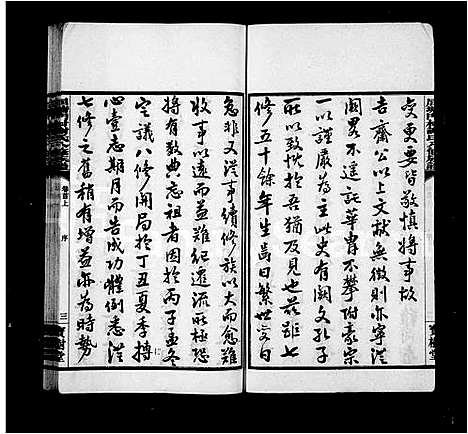 變更要皆敬慎將事故
吉齋公以上文獻無徵則亦寧從
闕畧不遽託華胄不攀附豪宗
一以謹嚴為主此史有闕文孔子
所以致慨於吾猶及見也茲雖七
修五十餘年生齒日繁世變日
急非又從事續修族以大而愈難
收事以遠而益難紀還流所極恐
將有數典忘祖者因於丙子孟冬
定議八修開局於丁丑夏季摶
心壹志期月而告成功體例悉從
七修之舊稍有增益亦為時勢
卷首上
序
三
寶樹堂